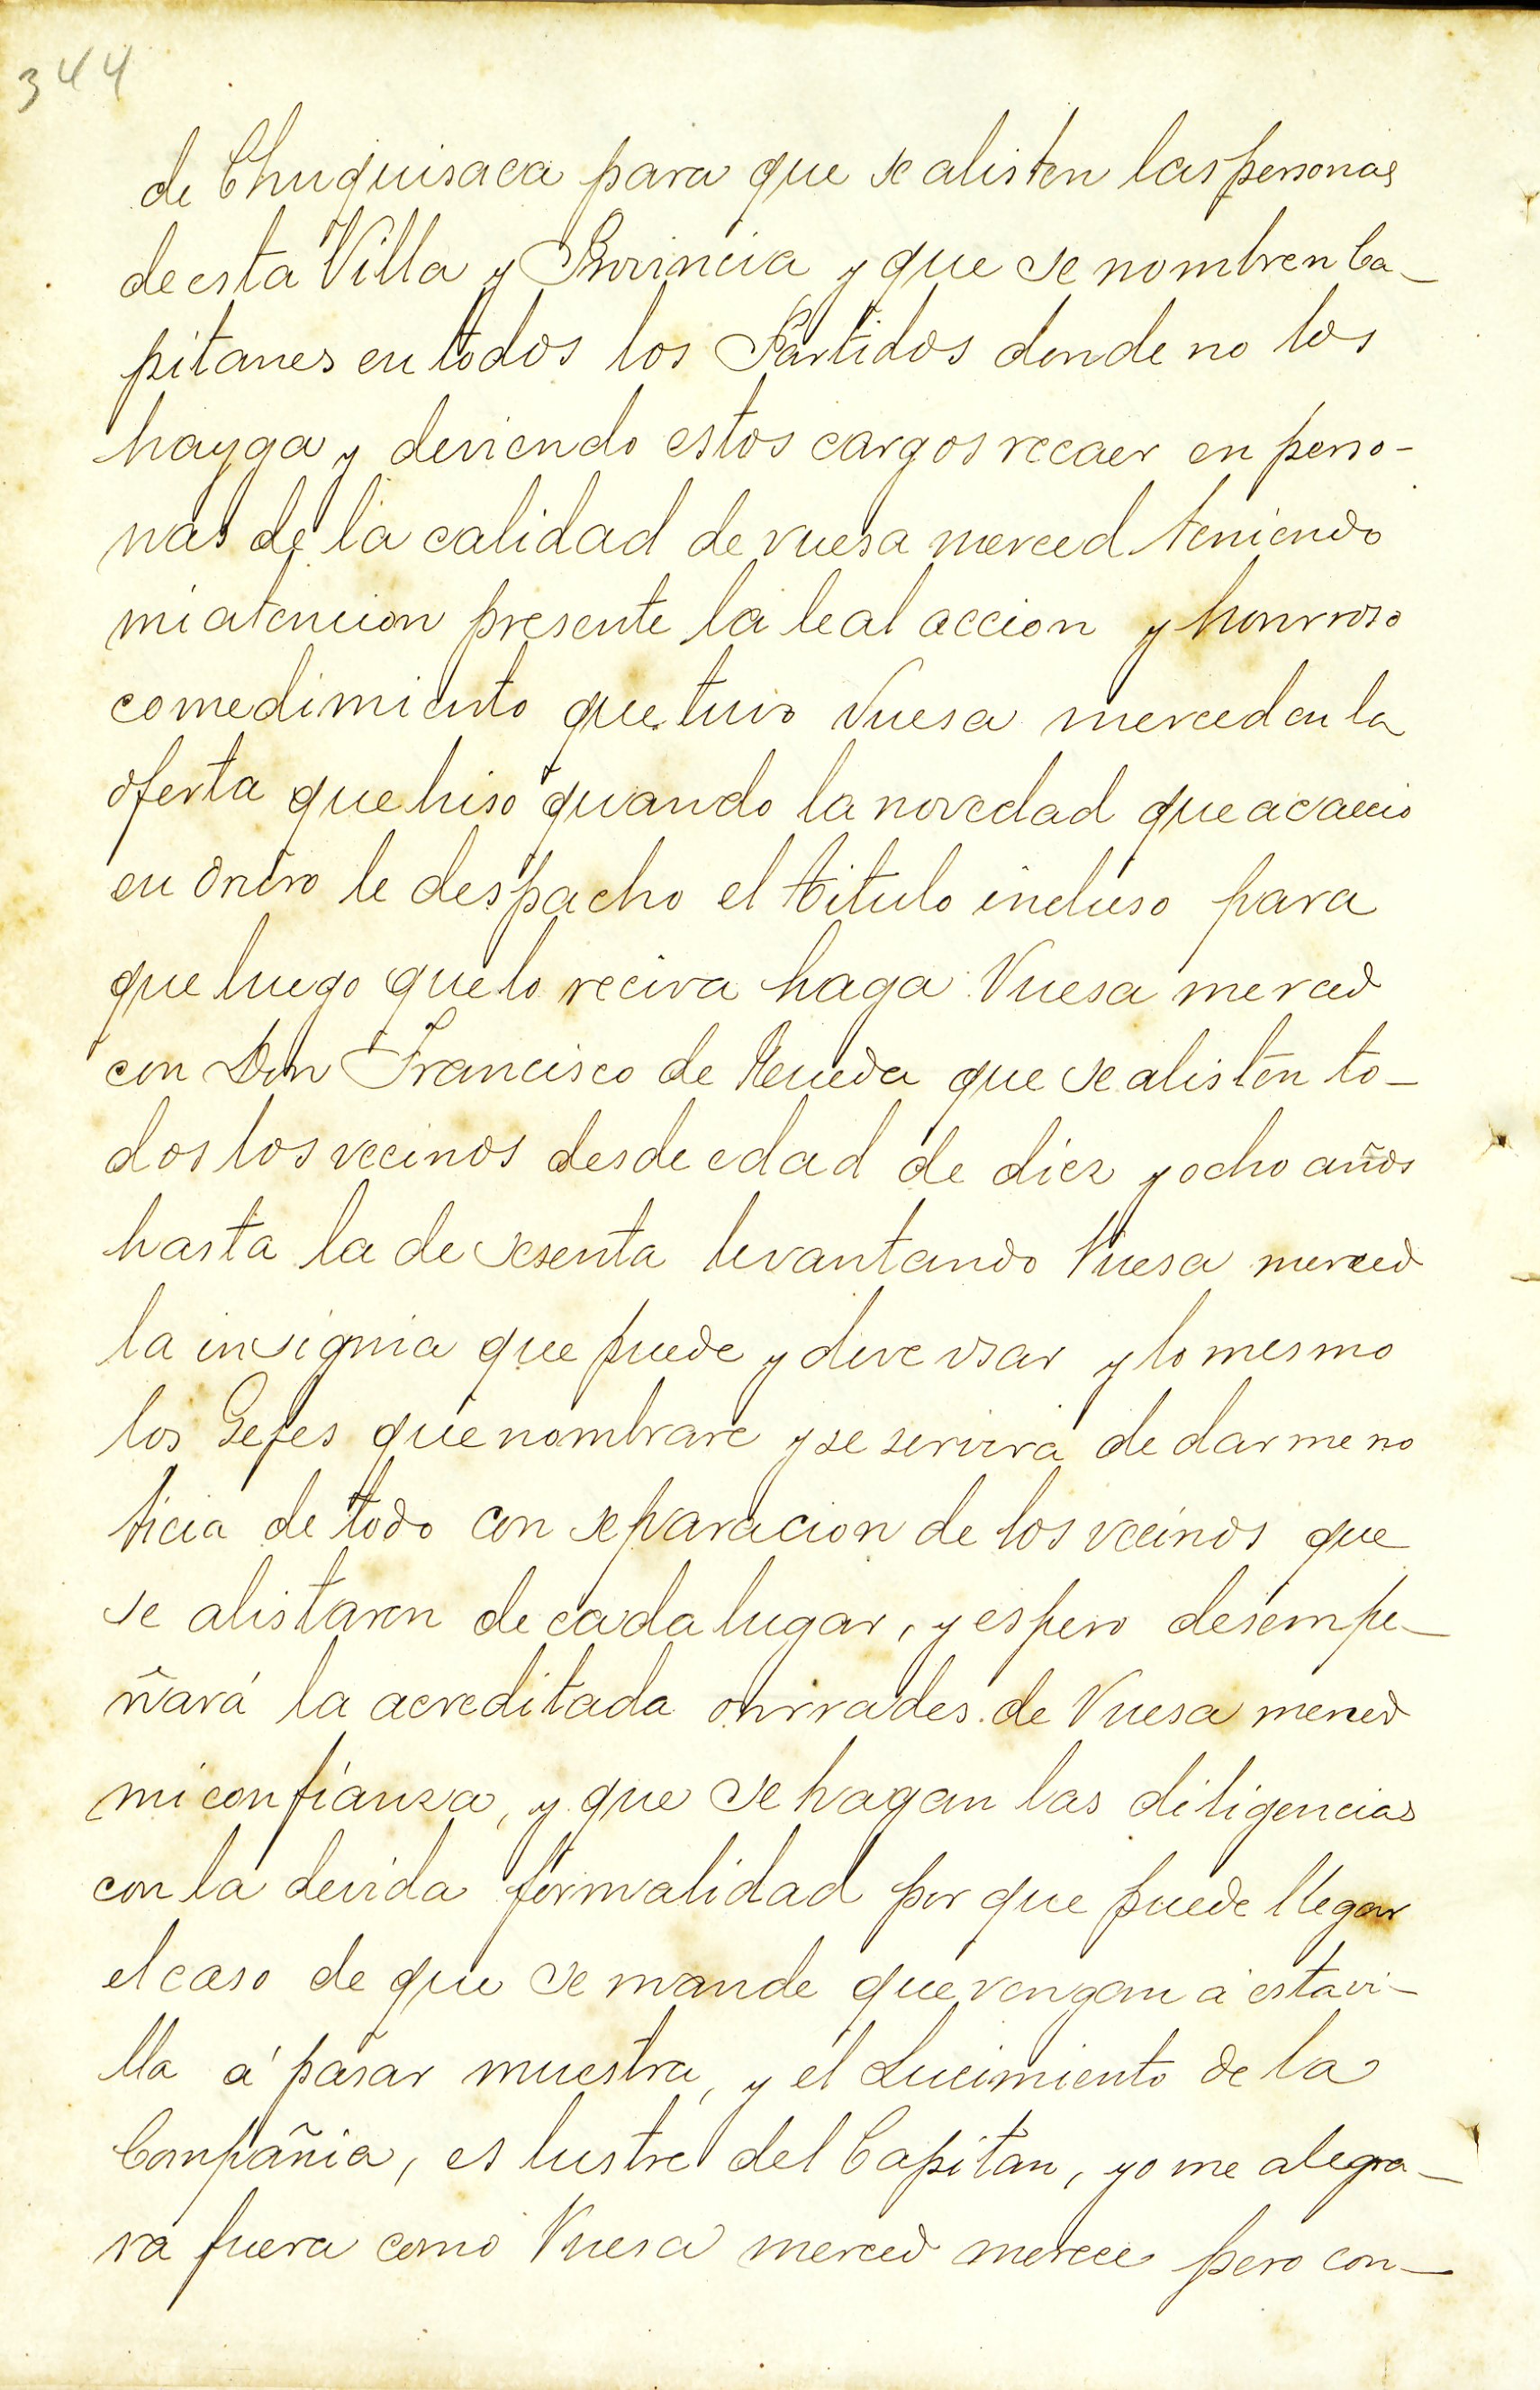 344
de Chuquisaca para que se alisten las personas
de esta Villa y Provincia y que se nombren Ca-
pitanes en todos los Partidos donde no los
hayga y deviendo estos cargos recaer en perso-
nas de la calidad de vuesa merced teniendo
mi atencion presente la leal accion y honrroso
comedimiento que tuvo Vuesa merced en la
oferta que hiso quando la novedad que acaecio
en Oruro le despacho el titulo incluso para
que luego que lo reciva haga Vuesa merced
con Don Francisco de Rueda que se alisten to-
dos los vecinos desde edad de diez y ocho años
hasta la de sesenta levantando Vuesa merced
la insignia que puede y deve usar y lo mesmo
los Gefes que nombrare y se servira de darme no
ticia de todo con separacion de los vecinos que
se alistaren de cada lugar, y espero desempe-
ñará la acreditada onrrades de Vuesa merced
mi confianza, y que se hagan las diligencias
con la devida formalidad por que puede llegar
el caso de que se mande que vengan á esta vi-
lla á pasar muestra, y el Lucimiento de la
Compañia, es lustre del Capitan, yo me alegra-
ra fuera como Vuesa merced merece pero con-